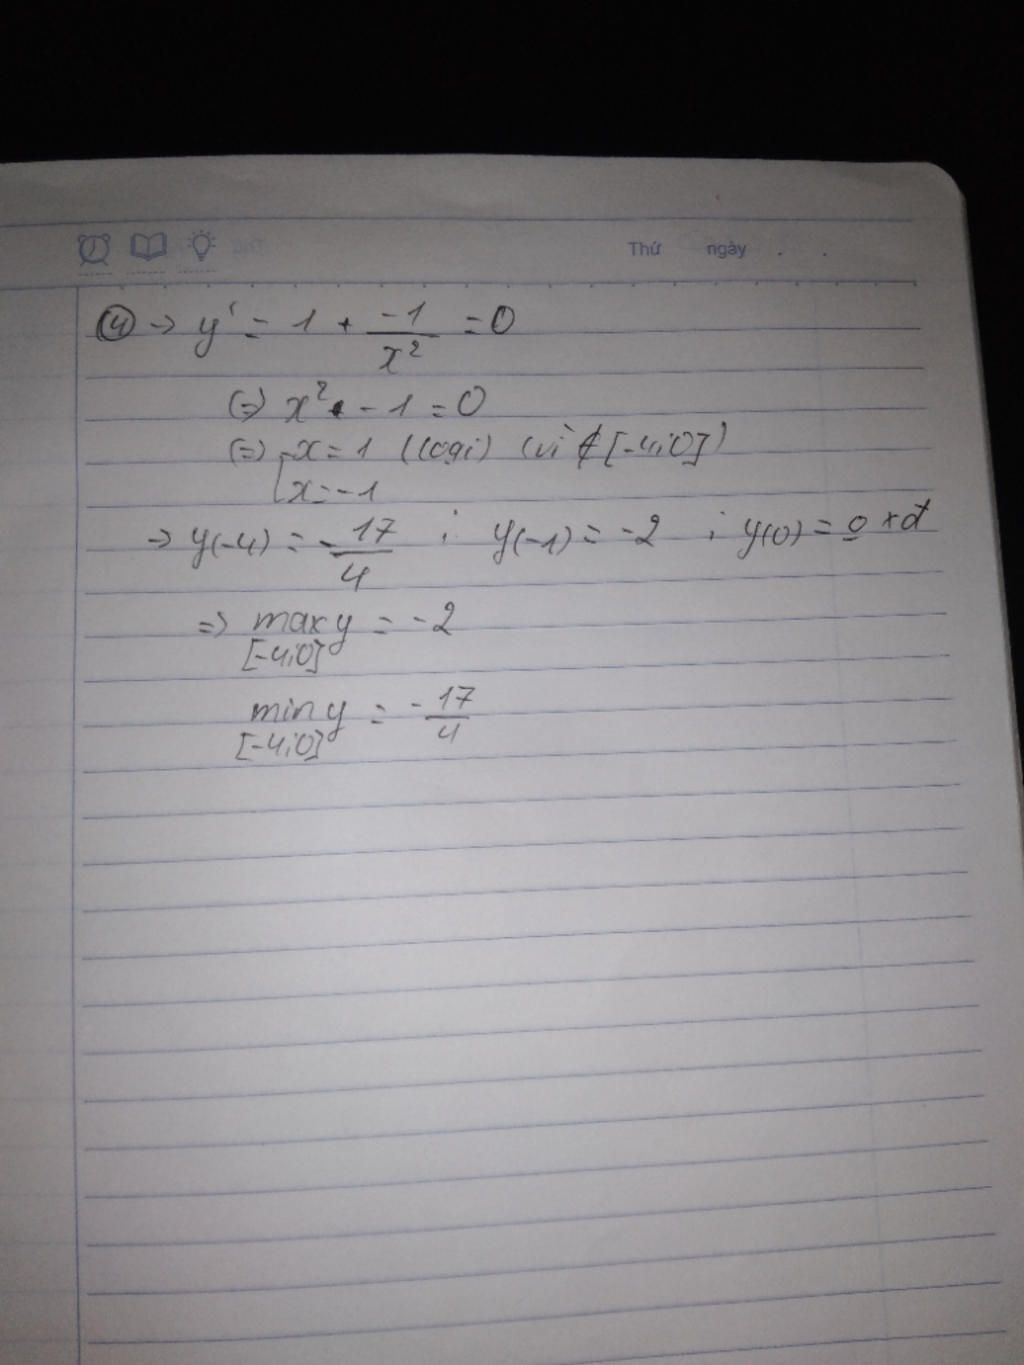 Thứ ngày . .
④ → y' = 1 + -1/x² = 0
(=) x² - 1 = 0
(=) [x = 1 (loại) (vì ∉ [-4;0])
[x = -1
→ y(-4) = -17/4 ; y(-1) = -2 ; y(0) = 0 xđ
=> max y = -2
[-4;0]
min y = -17/4
[-4;0]